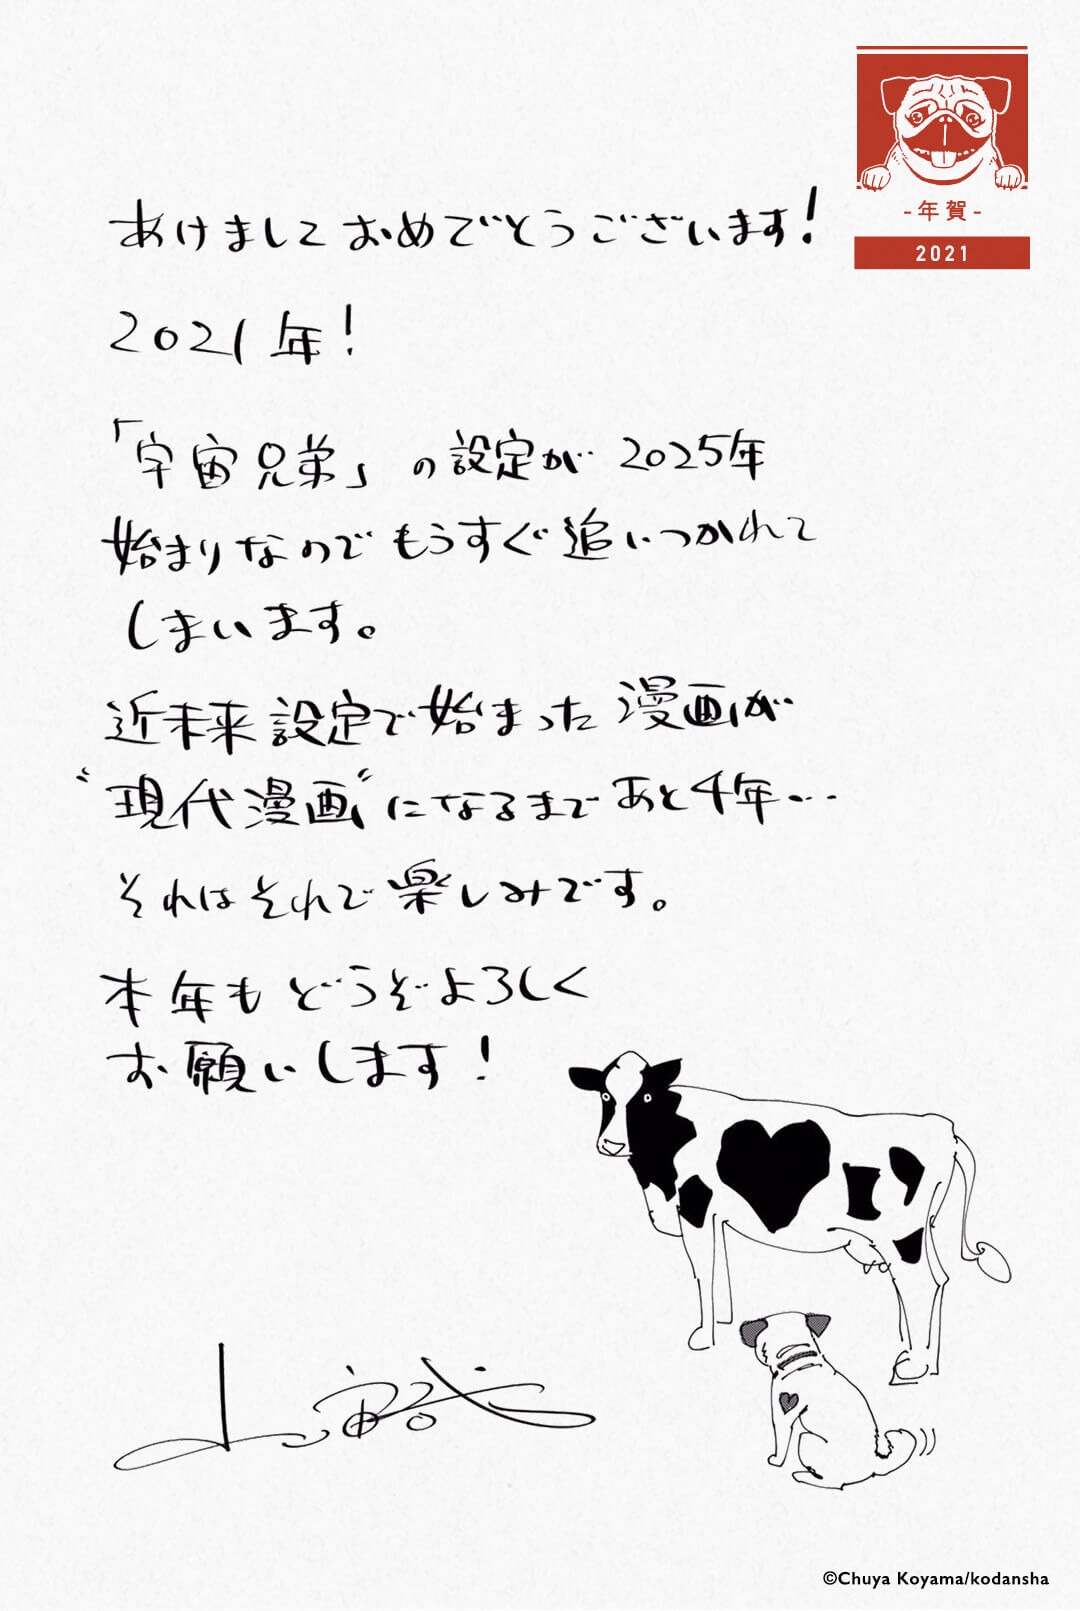 -年賀-
2021
あけましておめでとうございます!
2021年!
「宇宙兄弟」の設定が2025年
始まりなのでもうすぐ追いつかれて
しまいます。
近未来設定で始まった漫画が
“現代漫画”になるまであと4年…
それはそれで楽しみです。
本年もどうぞよろしく
お願いします!
©Chuya Koyama/kodansha